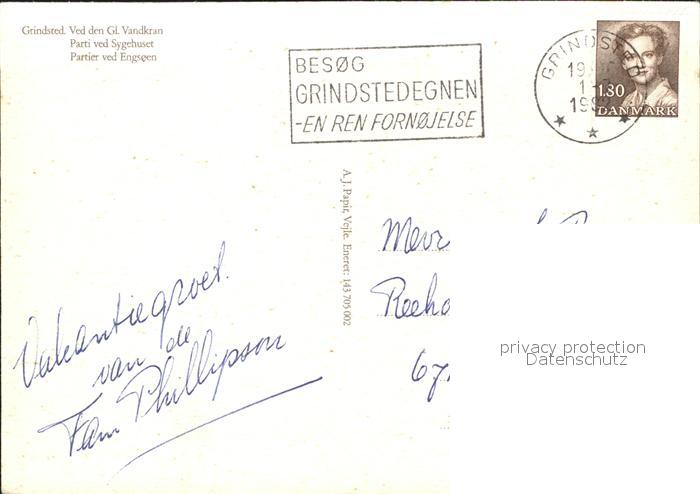 Grindsted. Ved den Gl. Vandkran
Parti ved Sygehuset
Partier ved Engsøen
BESØG
GRINDSTEDEGNEN
-EN REN FORNØJELSE
GRINDSTED
19
1982
1.80
DANMARK
A. J. Papir, Vejle. Eneret: 143 705 002
Vakantiegroet.
van de
Fam Phillipson
Mevr
Reeho
67.
privacy protection
Datenschutz